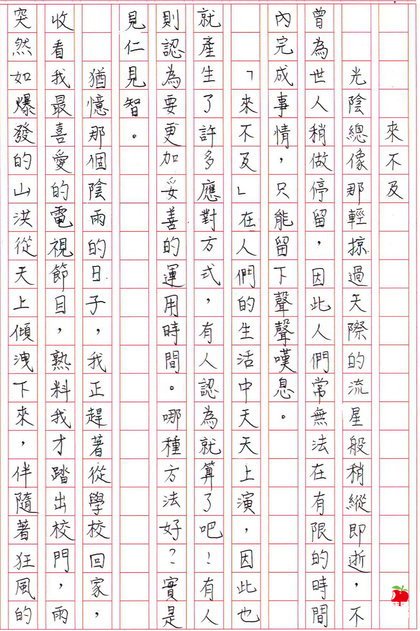 來不及
光陰總像那輕掠過天際的流星般稍縱即逝，不
曾為世人稍做停留，因此人們常無法在有限的時間
內完成事情，只能留下聲聲嘆息。
「來不及」在人們的生活中天天上演，因此也
就產生了許多應對方式，有人認為就算了吧！有人
則認為要更加妥善的運用時間。哪種方法好？實是
見仁見智。
猶憶那個陰雨的日子，我正趕著從學校回家，
收看我最喜愛的電視節目，熟料我才踏出校門，雨
突然如爆發的山洪從天上傾洩下來，伴隨著狂風的